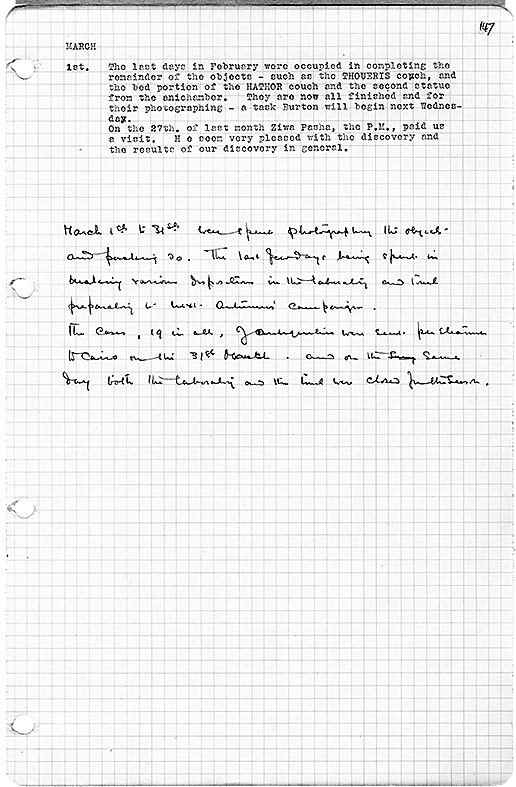 147
MARCH
1st. The last days in February were occupied in completing the
remainder of the objects - such as the THOUERIS couch, and
the bed portion of the HATHOR couch and the second statue
from the anichamber. They are now all finished and for
their photographing - a task Burton will begin next Wednes-
day.
On the 27th. of last month Ziwa Pasha, the P.M., paid us
a visit. H e seem very pleased with the discovery and
the results of our discovery in general.
March 1st to 31st were spent photographing the objects
and packing do. The last few days being spent in
making various dispositions in the laboratory and tomb
preparatory to next Autumns' campaign.
The cases, 19 in all, of antiquities were sent per steamer
to Cairo on the 31st March. and on the same
day both the laboratory and the tomb were closed for the season.